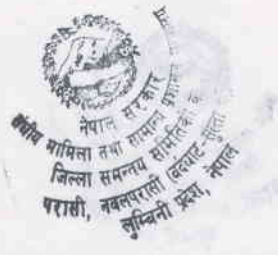 नेपाल सरकार
संघीय मामिला तथा सामान्य प्रशासन
जिल्ला समन्वय समितिको
परासी, नवलपरासी (बर्दघाट-सुस्ता
लुम्बिनी प्रदेश, नेपाल